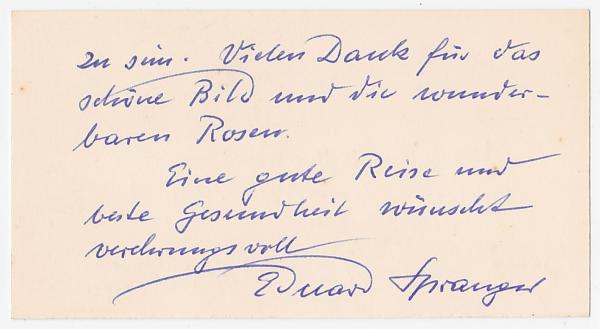 zu sein. Vielen Dank für das
schöne Bild und die wunder-
baren Rosen.
Eine gute Reise und
beste Gesundheit wünscht
verehrungsvoll
Eduard Spranger